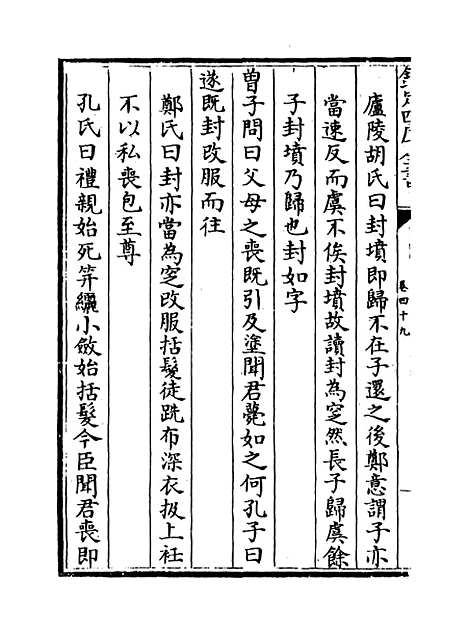 欽定四庫全書
卷四十九
廬陵胡氏曰封墳即歸不在子還之後鄭意謂子亦
當速反而虞不俟封墳故讀封為窆然長子歸虞餘
子封墳乃歸也封如字
曽子問曰父母之喪既引及塗聞君薨如之何孔子曰
遂既封改服而往
鄭氏曰封亦當為窆改服括髮徒跣布深衣扱上衽
不以私喪包至尊
孔氏曰禮親始死笄纚小斂始括髮今臣聞君喪即